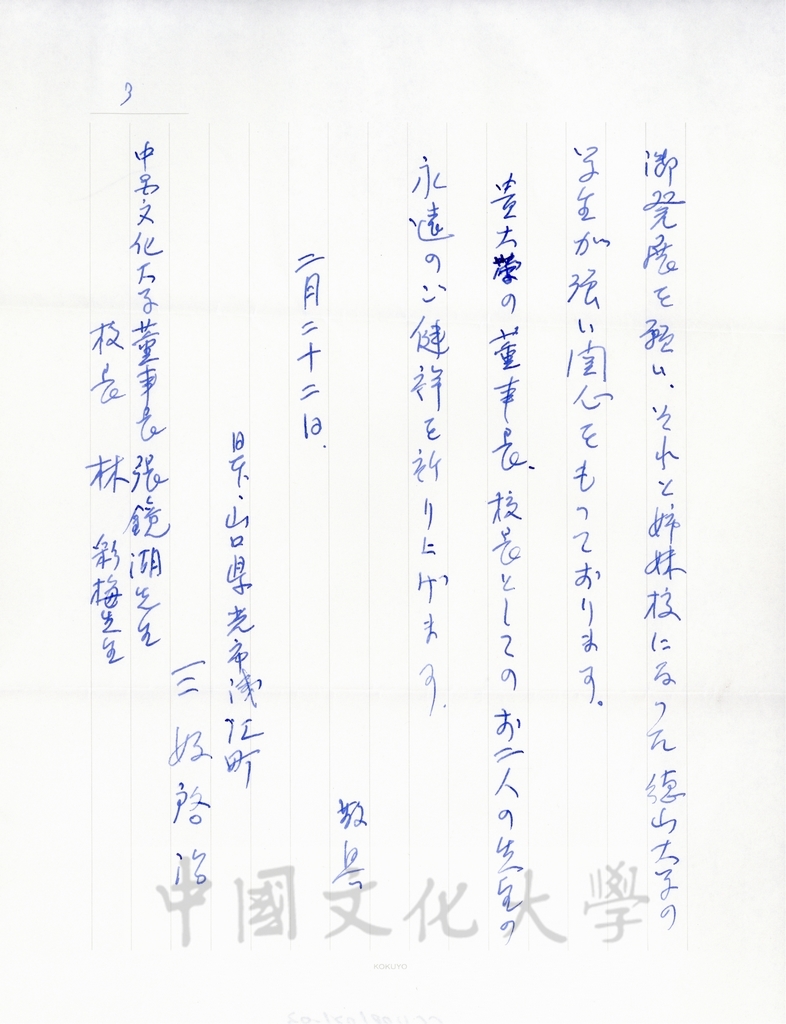 3
御発展を願い、それと姉妹校になった徳山大学の
学生が強い関心をもっております。
貴大学の董事長、校長としてのお二人の先生の
永遠のご健祥を祈り上げます。
敬具
二月二十二日、
日本、山口県光市浅江町
三好啓治
中国文化大学董事長 張鏡湖先生
校長 林彩梅先生
中國文化大學
KOKUYO